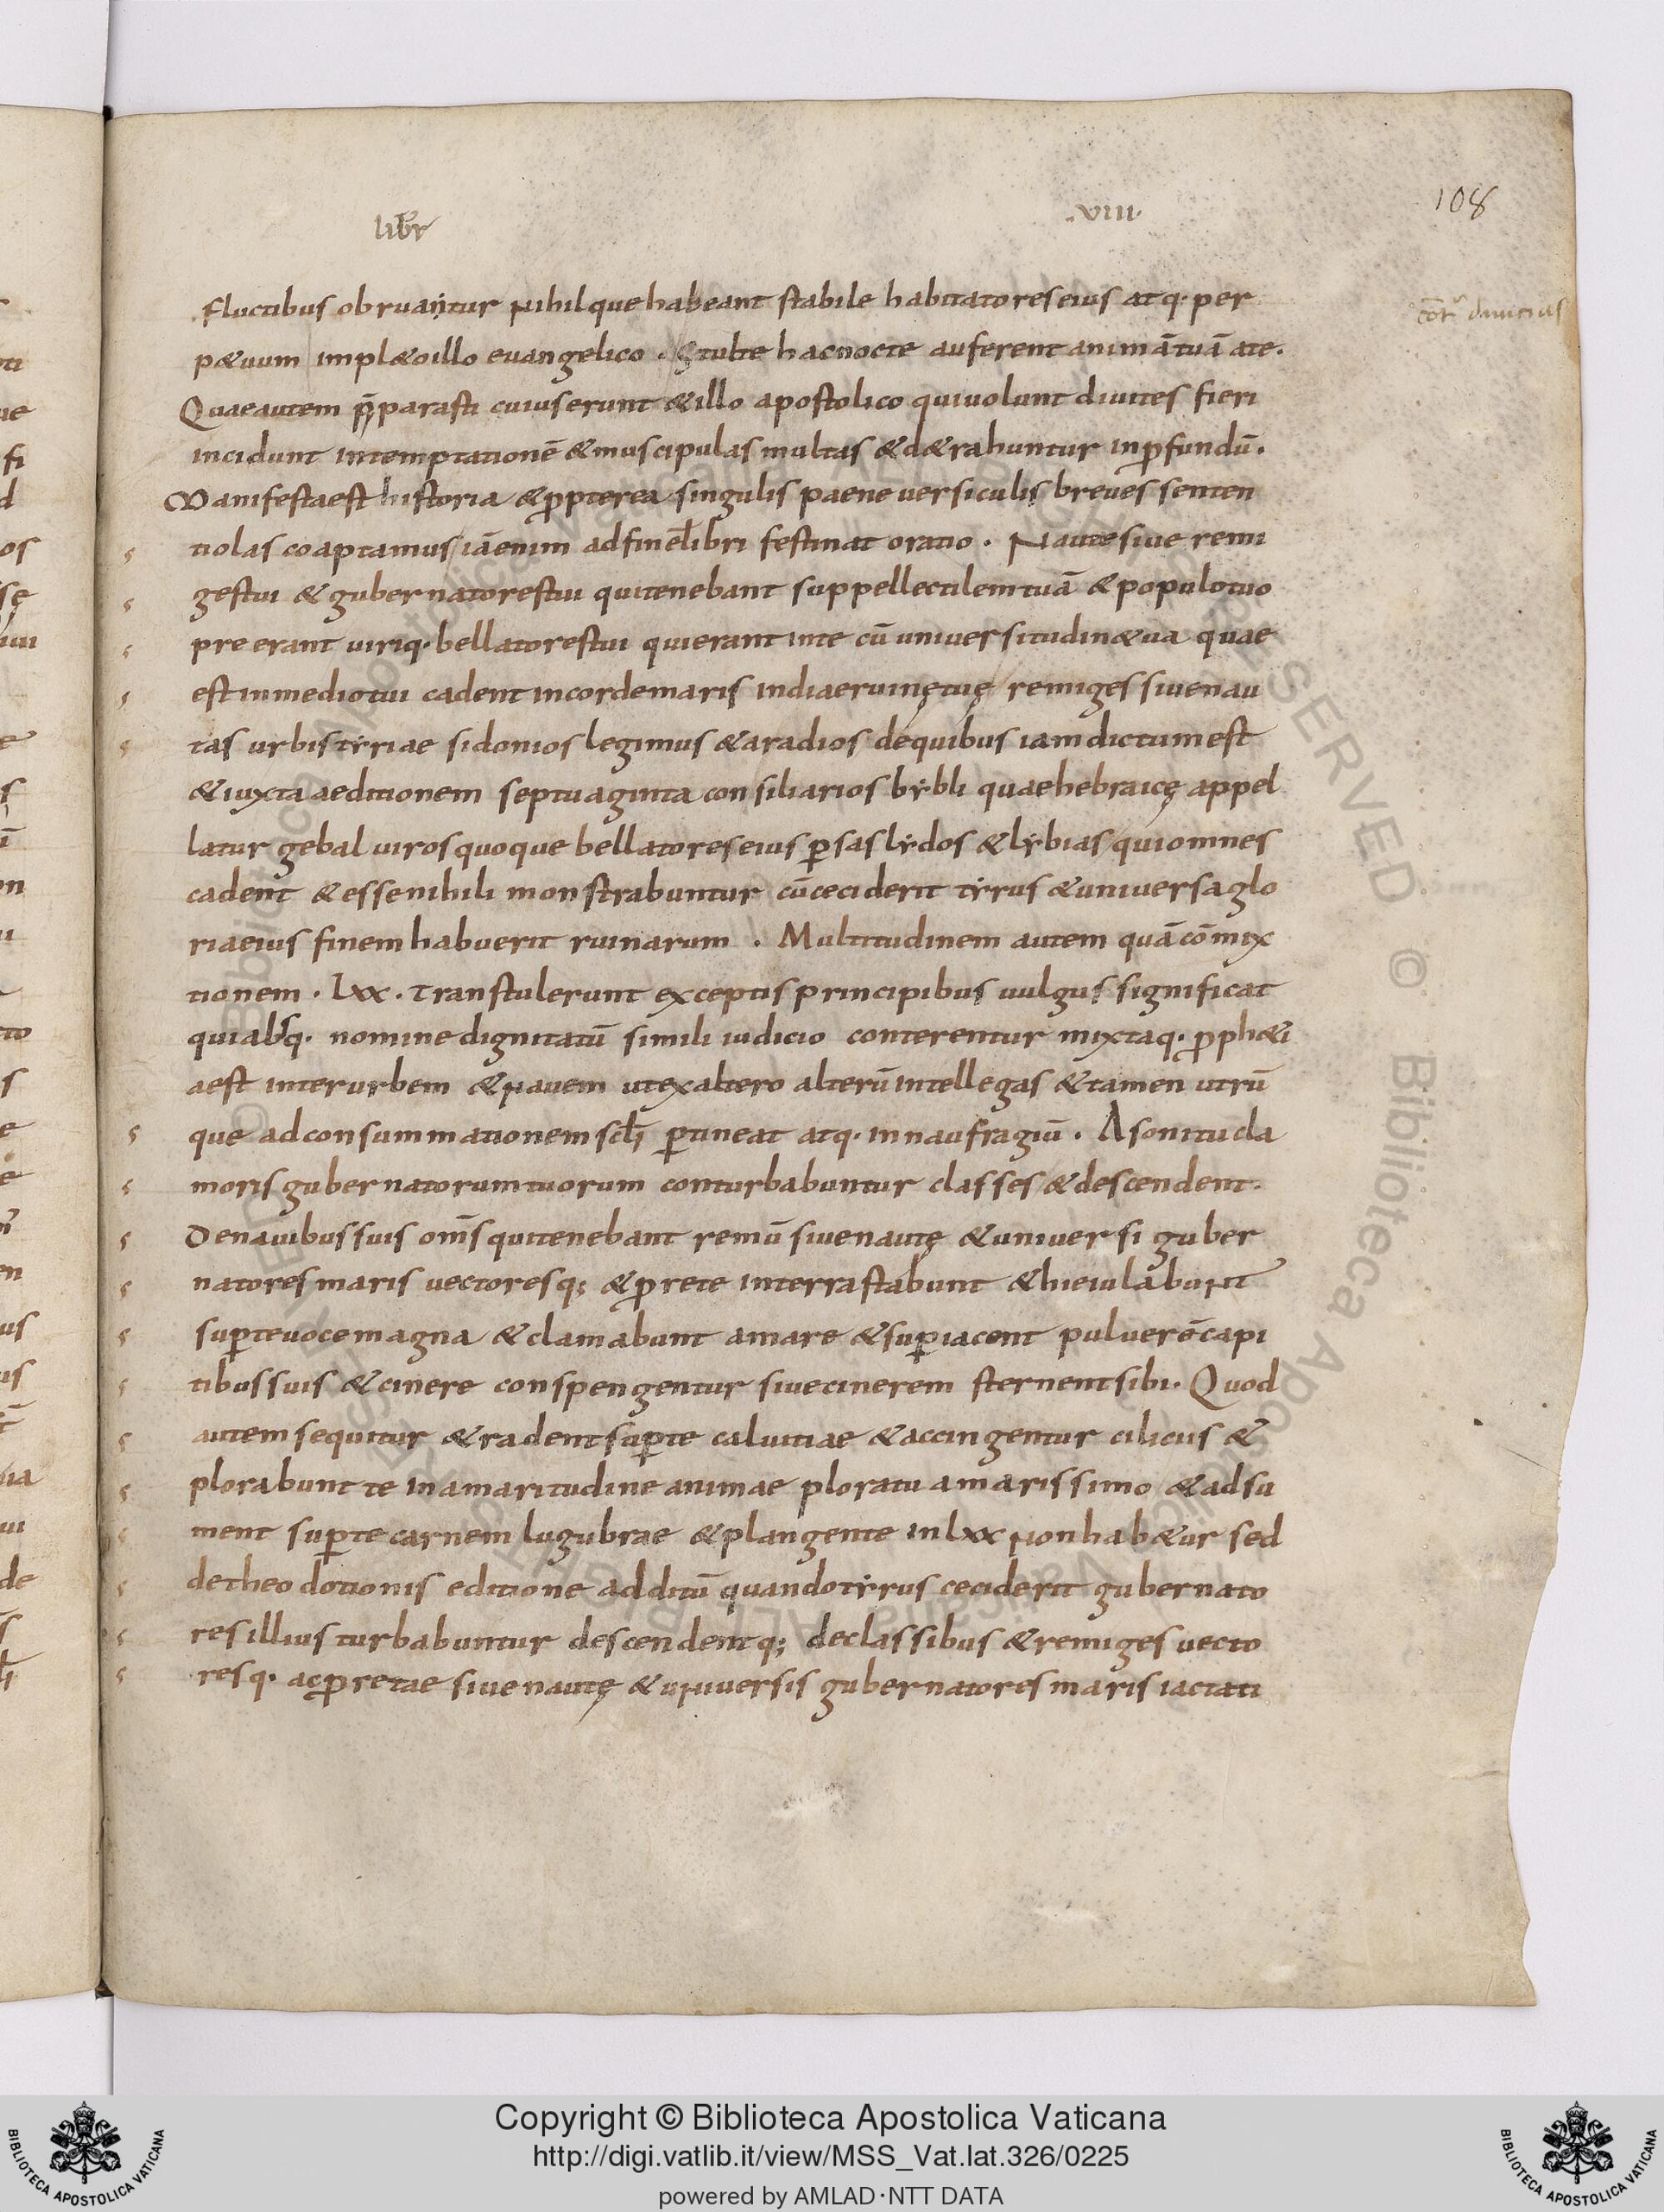 libr̄ .viii. 108
fluctibus obruantur nihilque habeant stabile habitatores eius atq· per cōtr̄ diuitias
p&uum impl&o illo euangelico . Stulte hac nocte auferent animā tuā a te.
Quae autem p̄parasti cuius erunt & illo apostolico qui uolunt diuites fieri
incidunt in temptationē & muscipulas multas & d&rahuntur in ꝓfundū.
Manifesta est historia & ꝓpterea singulis paene uersiculis breues senten
tiolas coaptamus iā enim ad finē libri festinat oratio . Naute siue remi
ges tui & gubernatores tui qui tenebant suppellectilem tuā & populo tuo
pre erant uiriq· bellatores tui qui erant in te cū uniuersitudin& ua quae
est in medio tui cadent in corde maris in diae ruinę tuę remiges siue nau
tas urbis tẏriae sidonios legimus & aradios de quibus iam dictum est
& iuxta aeditionem septuaginta consiliarios bẏbli quae hebraicę appel
latur gebal uiros quoque bellatores eius ꝑsas lẏdos & lẏbias qui omnes
cadent & esse nihili monstrabuntur cū ceciderit tẏrus & uniuersa glo
ria eius finem habuerit ruinarum . Multitudinem autem quā cōmix
tionem . lxx . transtulerunt exceptis principibus uulgus significat
qui absq· nomine dignitatū simili iudicio conterentur mixtaq· ꝓph&i
a est inter urbem & nauem ut ex altero alterū intellegas & tamen utrū
que ad consummationem scl̄i ꝑtineat atq· in naufragiū . A sonitu cla
moris gubernatorum tuorum conturbabuntur classes & descendent.
De nauibus suis om̄s qui tenebant remū siue nautę & uniuersi guber
natores maris uectoresq; & ꝓrete in terra stabunt & hieiulabunt
suꝑ te uoce magna & clamabunt amare & suꝑiacent puluerē capi
tibus suis & cinere conspengentur siue cinerem sternent sibi . Quod
autem sequitur & radent suꝑ te caluitiae & accingentur ciliciis &
plorabunt te in amaritudine animae ploratu amarissimo & adsu
ment suꝑ te carnem lugubrae & plangente in lxx non hab&ur sed
de theodotionis editione additū quando tẏrus ceciderit gubernato
res illius turbabuntur descendentq; de classibus & remiges uecto
resq· ac ꝓretae siue nautę & uniuersis gubernatores maris iactati
Copyright © Biblioteca Apostolica Vaticana
http://digi.vatlib.it/view/MSS_Vat.lat.326/0225
powered by AMLAD·NTT DATA
BIBLIOTECA APOSTOLICA VATICANA
BIBLIOTECA APOSTOLICA VATICANA